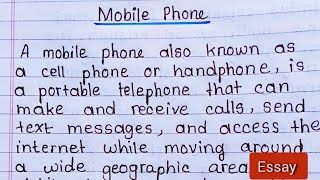 Mobile Phone
A mobile phone also known as
a cell phone or handphone, is
a portable telephone that can
make and receive calls, send
text messages, and access the
internet while moving around
a wide geographic area
Essay